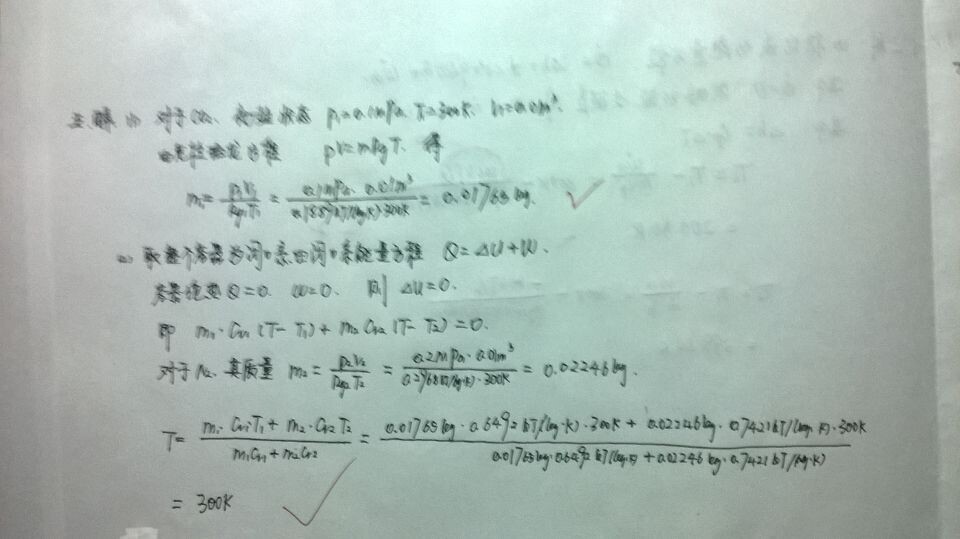 三.解 (1) 对于CO₂, 初始状态 p₁=0.1MPa. T₁=300K. V₁=0.01m³.
由克拉珀龙方程 pV=mRgT. 得
m₁= p₁V₁/Rg₁T₁ = 0.1MPa·0.01m³/0.1889kJ/(kg·K)·300K = 0.01765kg.
(2) 取整个容器为闭口系由闭口系能量方程 Q=ΔU+W.
容器绝热 Q=0. W=0. 则 ΔU=0.
即 m₁·Cv₁(T-T₁)+m₂Cv₂(T-T₂)=0.
对于N₂. 其质量 m₂= p₂V₂/Rg₂T₂ = 0.2MPa·0.01m³/0.2968kJ/(kg·K)·300K = 0.02246kg.
T= m₁·Cv₁T₁+m₂·Cv₂T₂/m₁Cv₁+m₂Cv₂ = 0.01765kg·0.6492kJ/(kg·K)·300K+0.02246kg·0.7421kJ/(kg·K)·300K/0.01765kg·0.6492kJ/(kg·K)+0.02246kg·0.7421kJ/(kg·K)
= 300K